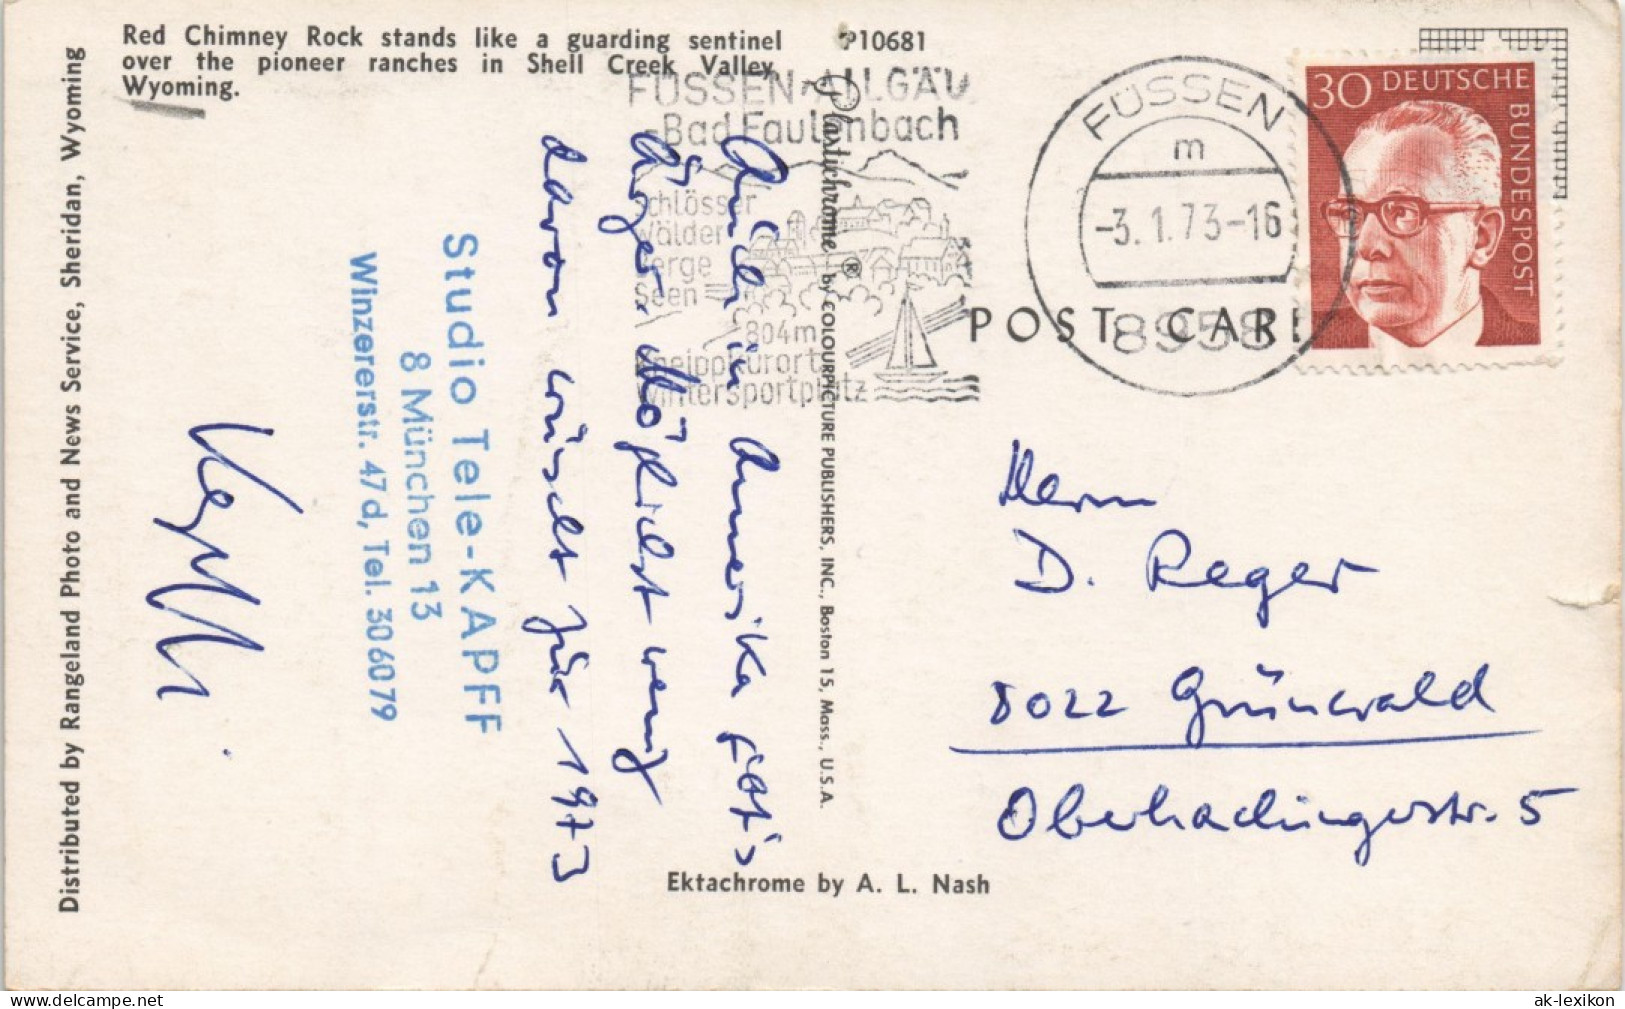 Red Chimney Rock stands like a guarding sentinel
over the pioneer ranches in Shell Creek Valley,
Wyoming.
P10681
Distributed by Rangeland Photo and News Service, Sheridan, Wyoming
FÜSSEN-ALLGÄU
-Bad Faulenbach
Schlösser
Wälder
Berge
Seen
804m
Kneippkurort
Wintersportplatz
FÜSSEN
m
-3.1.73-16
8958
30 DEUTSCHE
BUNDESPOST
POST CARD
Plastichrome ® by COLOURPICTURE PUBLISHERS, INC., Boston 15, Mass., U.S.A.
Auch in Ammerika gibt's
Ärger. Möglichst wenig
davon wünscht für 1973
Studio Tele-KAPFF
8 München 13
Winzererstr. 47d, Tel. 306079
Herrn
D. Reger
8022 Grünwald
Oberhachingerstr. 5
Ektachrome by A. L. Nash
ak-lexikon